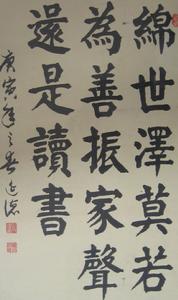 綿世澤莫若
為善振家聲
還是讀書
庚寅年之春延德